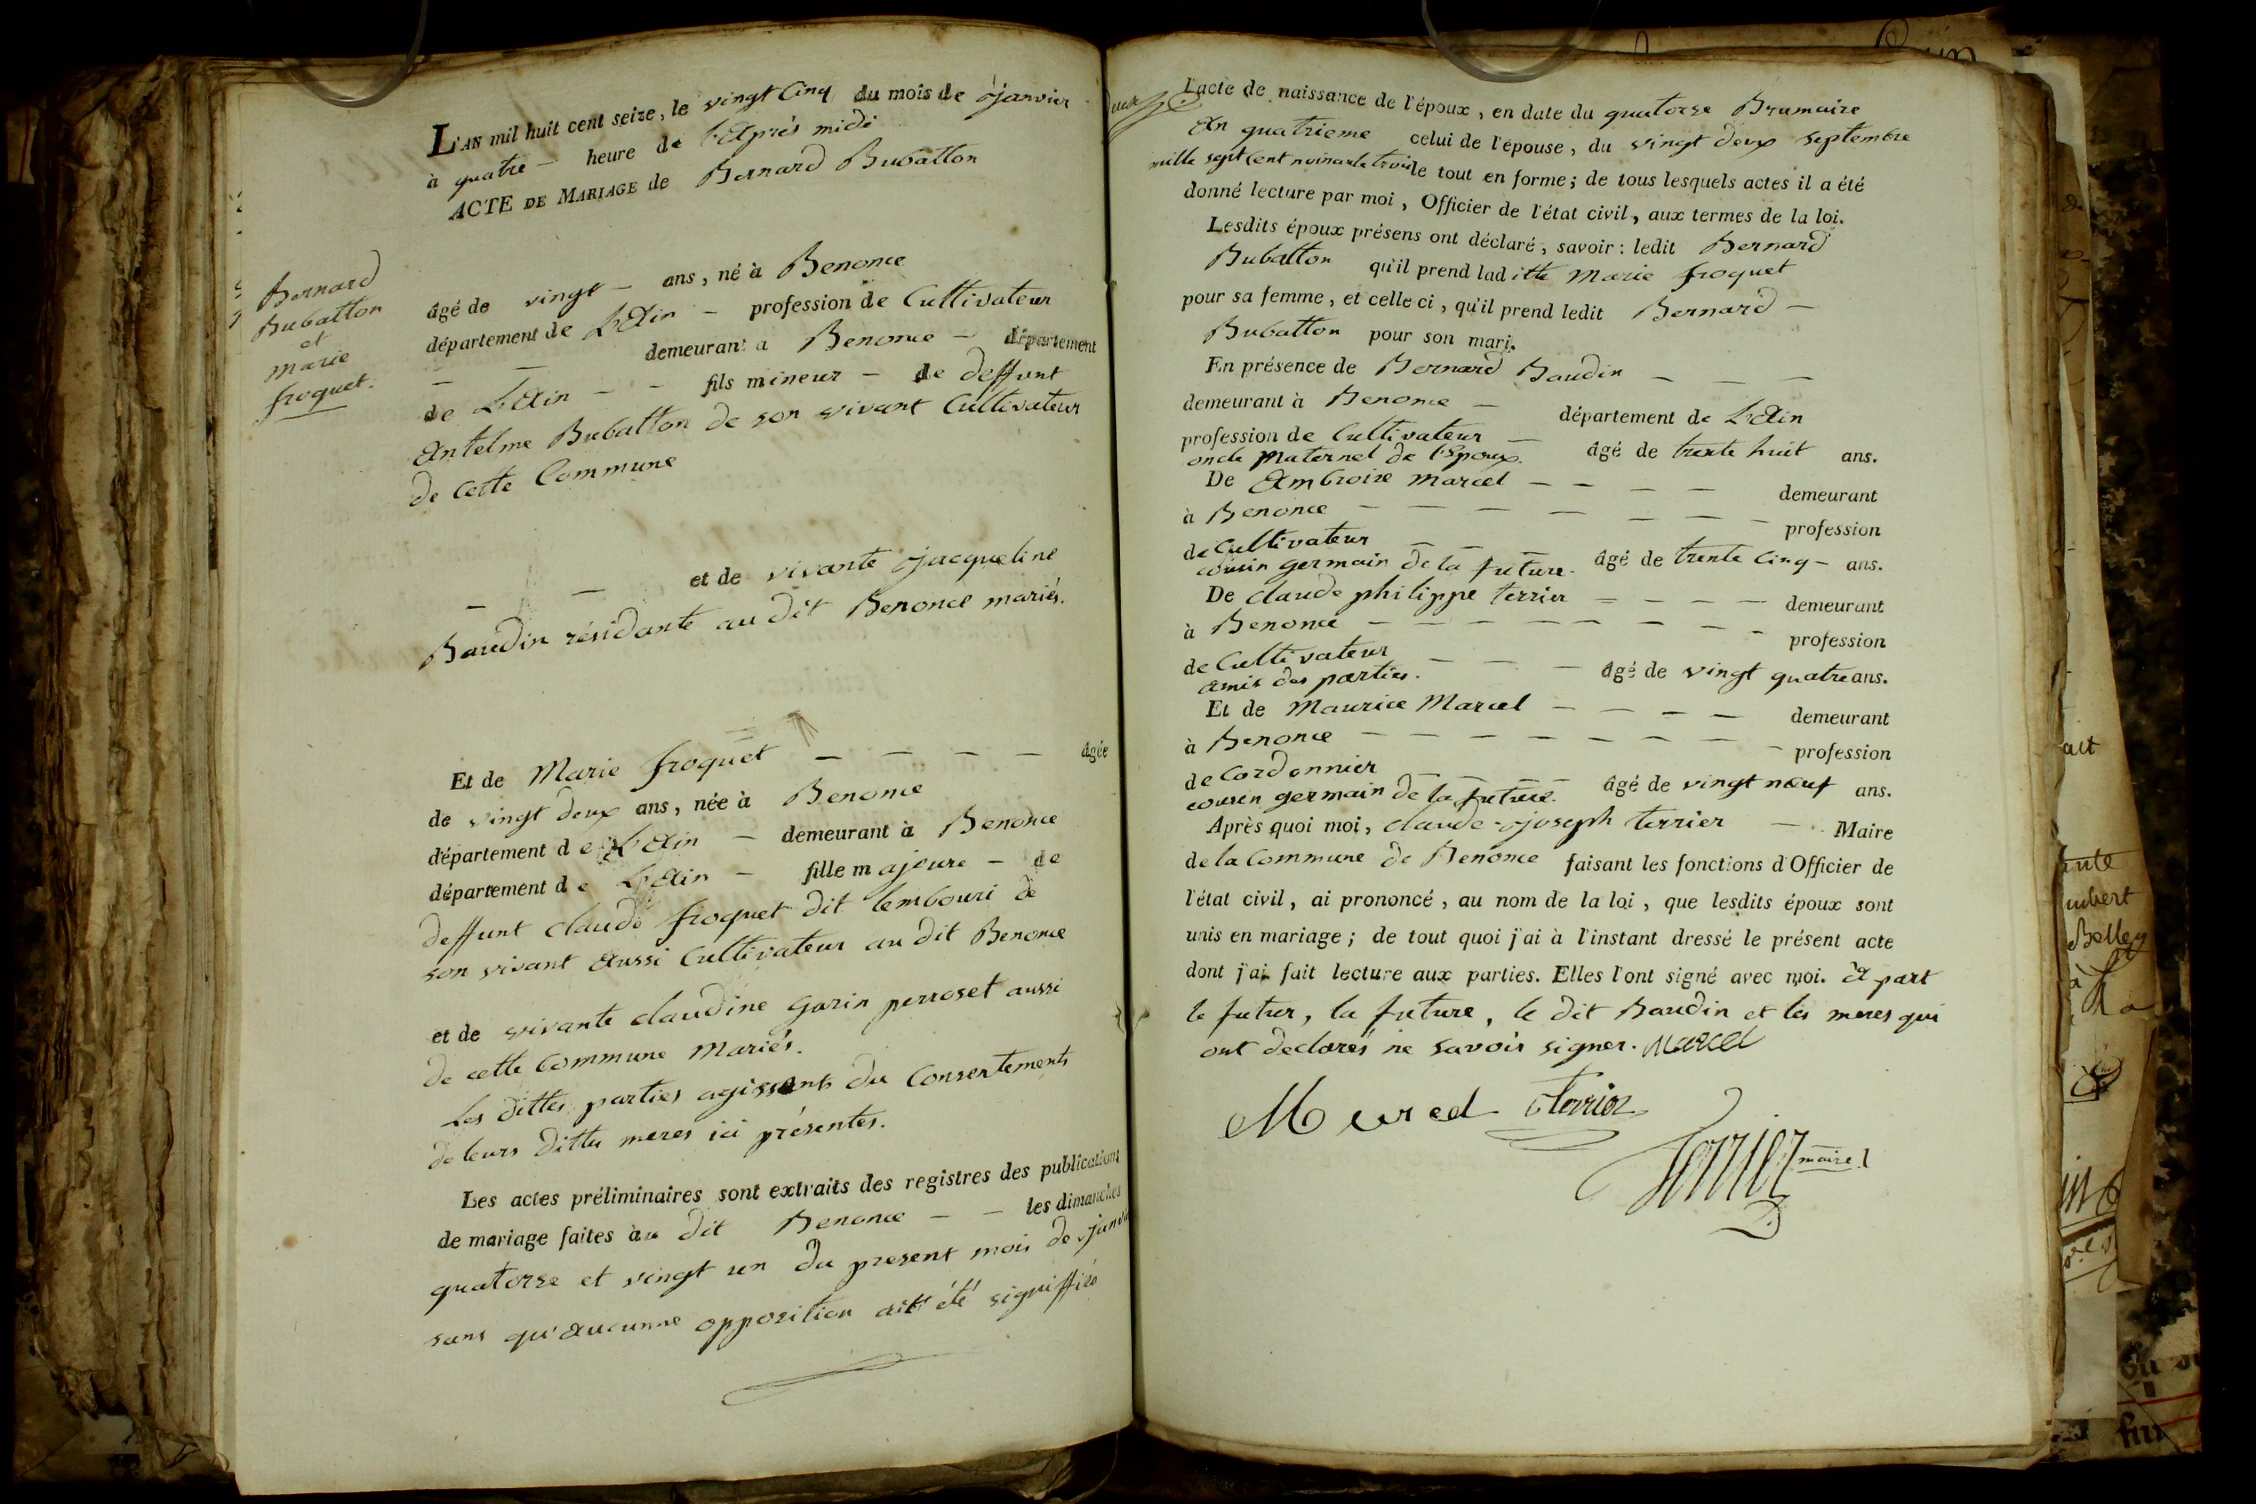 Bernard
Bubatton
et
marie
froquet.
L'AN mil huit cent seize, le vingt Cinq du mois de janvier
à quatre — heure de L'Après midi
ACTE DE MARIAGE de Bernard Bubatton
âgé de vingt — ans, né à Benonce
département de L'Ain — profession de Cultivateur
— — demeurant a Benonce — département
de L'Ain — — fils mineur — de deffunt
Antelme Bubatton de son vivant Cultivateur
de Cette Commune
— — et de vivante jacqueline
Baudin résidante au dit Benonce mariés.
Et de Marie froquet — — — — âgée
de vingt deux ans, née à Benonce
département de L'Ain — demeurant à Benonce
département de L'Ain — fille majeure — de
deffunt claude froquet dit lembouri de
son vivant Aussi Cultivateur au dit Benonce
et de vivante claudine Garin perroset aussi
de cette Commune Mariés.
Les dittes parties agissants du Consentements
de leurs dittes meres ici présentes.
Les actes préliminaires sont extraits des registres des publications
de mariage faites àu dit Benonce — — les dimanches
quatorse et vingt un du present mois de janv
sans qu'aucunne opposition ait été signiffiés
L'acte de naissance de l'époux, en date du quatorse Brumaire
An quatrieme celui de l'épouse, du vingt deux septembre
mille sept Cent noinante trois le tout en forme; de tous lesquels actes il a été
donné lecture par moi, Officier de l'état civil, aux termes de la loi.
Lesdits époux présens ont déclaré, savoir: ledit Bernard
Bubatton qu'il prend laditte Marie froquet
pour sa femme, et celle ci, qu'il prend ledit Bernard —
Bubatton pour son mari.
En présence de Bernard Baudin — — —
demeurant à Benonce — département de L'Ain
profession de Cultivateur — âgé de trente huit ans.
oncle Maternel de l'Epoux.
De Ambroise Marcel — — — — demeurant
à Benonce — — — — — — — — profession
de Cultivateur — — — âgé de trente Cinq — ans.
cousin germain de la future.
De claude philippe terrier — — — — demeurant
à Benonce — — — — — — — — profession
de Cultivateur — — — âgé de vingt quatre ans.
amis des parties.
Et de Maurice Marcel — — — — demeurant
à Benonce — — — — — — — — profession
de Cordonnier — — — — âgé de vingt nœuf ans.
cousin germain de la future.
Après quoi moi, claude-joseph terrier — Maire
de la Commune de Benonce faisant les fonctions d'Officier de
l'état civil, ai prononcé, au nom de la loi, que lesdits époux sont
unis en mariage; de tout quoi j'ai à l'instant dressé le présent acte
dont j'ai fait lecture aux parties. Elles l'ont signé avec moi. à part
le futur, la future, le dit Baudin et les meres qui
ont declarés ne savoir signer. Marcel
Marcel Terrier
Terrier maire